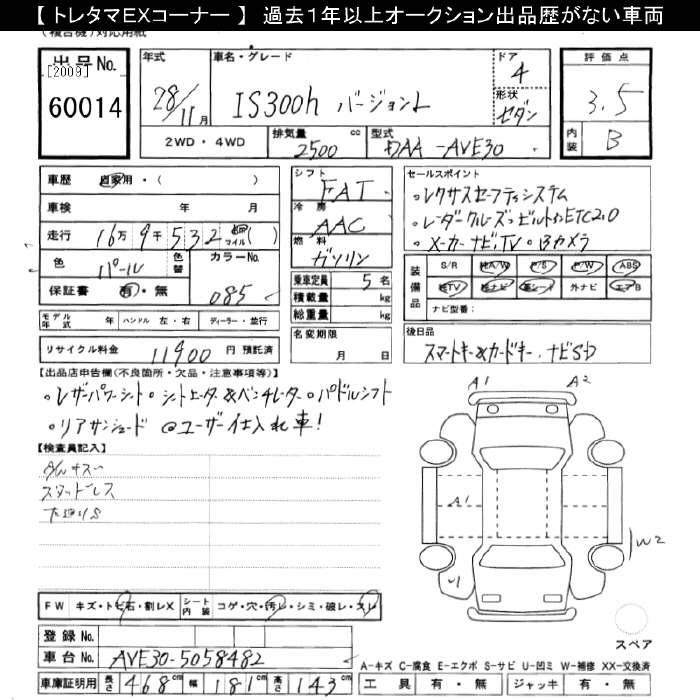 【 トレタマEXコーナー 】 過去1年以上オークション出品歴がない車両
出品No.
[2009]
60014
年式
28/11月
車名・グレード
IS300h バージョンL
ドア
4
形状
セダン
評価点
3.5
内装
B
2WD・4WD
排気量
2500 cc
型式
DAA-AVE30
車歴 自家用・( )
車検 年 月
走行 16万9千532 マイル( )
色 パール
色替
カラーNo. 085
保証書 有・無
モデル年式 年 ハンドル 左・右 ディーラー・並行
リサイクル料金 11900 円 預託済
シフト
FAT
冷房
AAC
燃料
ガソリン
乗車定員 5名
積載量 kg
総重量 kg
名変期限
月 日
セールスポイント
・レクサスセーフティシステム
・レーダークルーズ・ビルトインETC2.0
・メーカーナビ,TV・Bカメラ
装備品
S/R 純A/W P/S P/W ABS
純TV 純ナビ 革シート 外ナビ エアB
ナビ型番:
後日品
スマートキー&カードキー、ナビSD
【出品店申告欄(不良箇所・欠品・注意事項等)】
・レザーパワーシート・シートヒーター&ベンチレーター・パドルシフト
・リアサンシェード @ユーザー仕入れ車!
【検査員記入】
スタッドレス
FW キズ・トビ石・割レX シート内装 コゲ・穴・汚レ・シミ・破レ・スレ
登録 No.
車台 No. AVE30-5058482
車庫証明用 長さ 468cm 幅 181cm 高さ 143cm
A1
A2
A1
W2
U1
スペア
A-キズ C-腐食 E-エクボ S-サビ U-凹ミ W-補修 XX-交換済
工具 有・無 ジャッキ 有・無